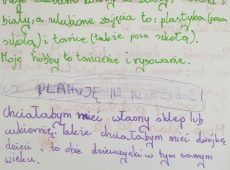 białą, a ulubione zajęcia to: plastyka (poza
szkołą) i tańce (także poza szkołą).
Moje hobby to tańczenie i rysowanie.
PLANUJĘ
chciałabym mieć własny sklep lub
cukiernię. Także chciałabym mieć dwójkę
dzieci i to obie dziewczynki w tym samym
wieku.